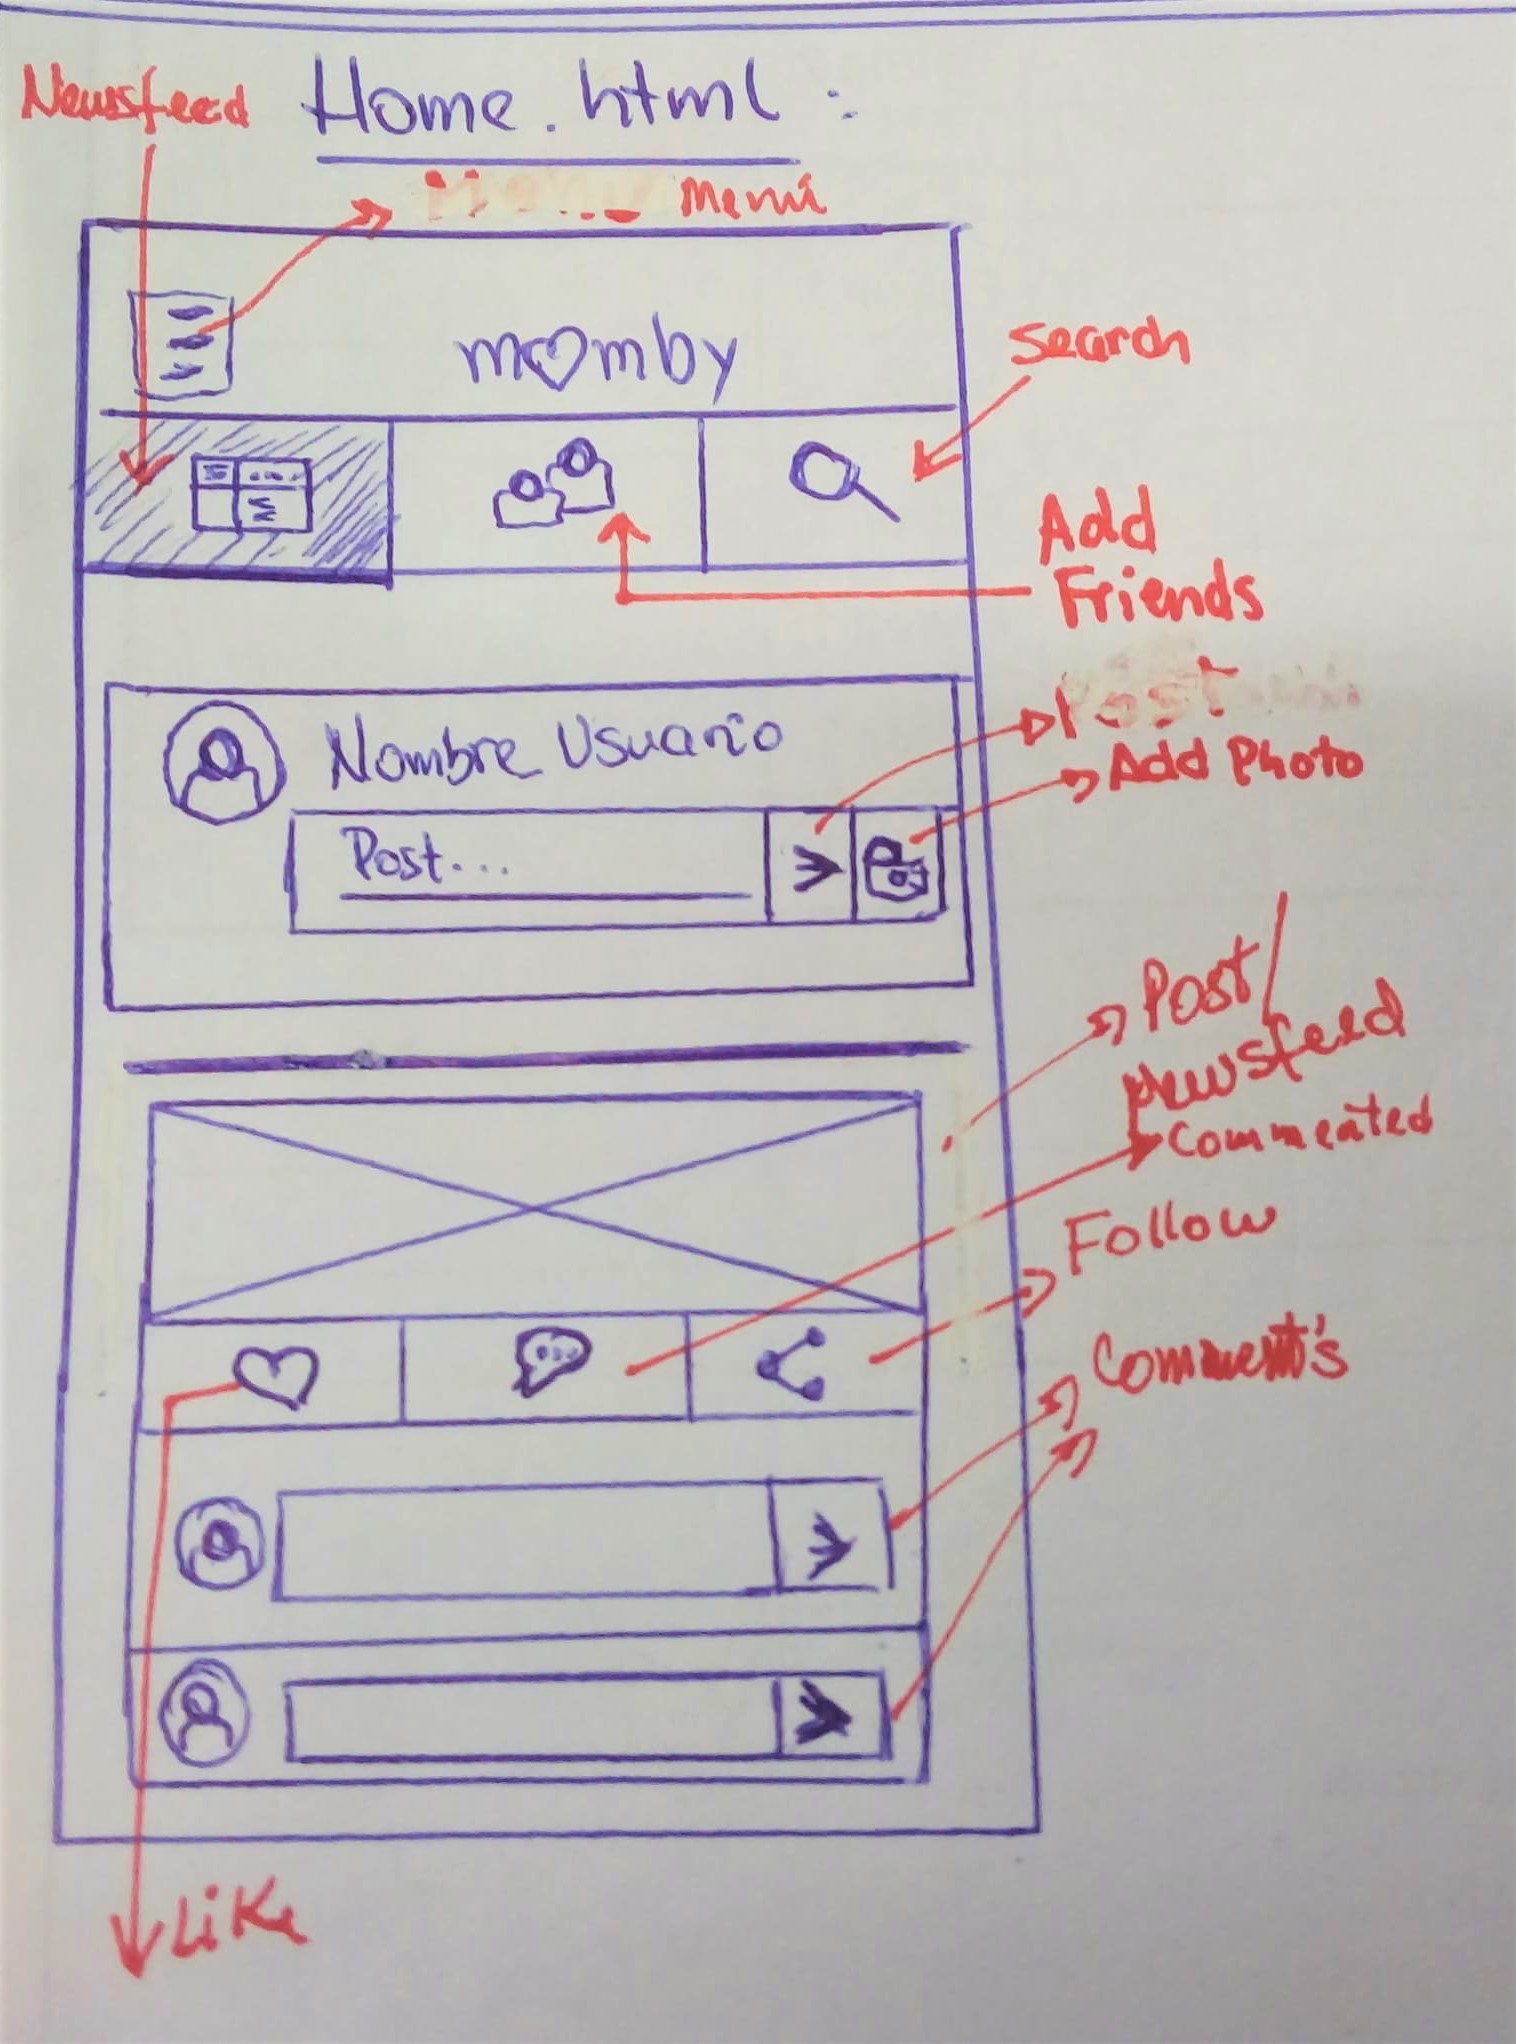 Newsfeed Home.html:
Menú
m♡mby
Search
Add
Friends
Nombre Usuario
Add Photo
Post...
Post/
Newsfeed
Commented
Follow
Comment's
Like